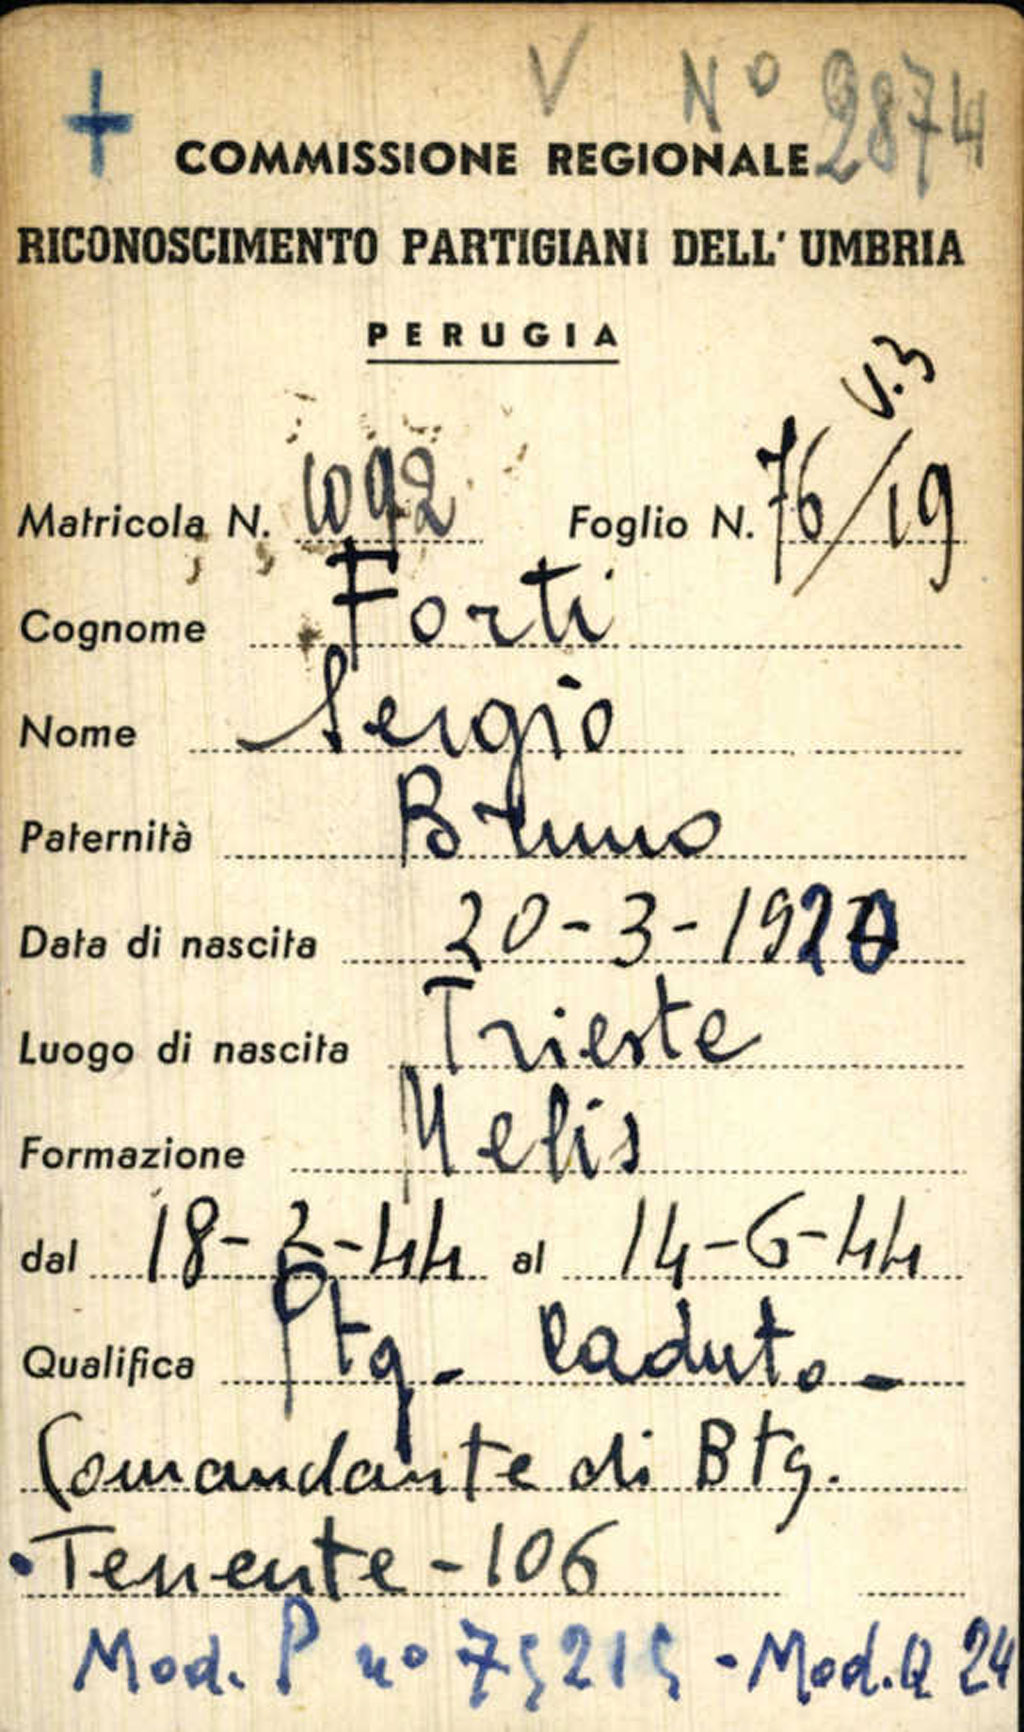 V N° 2874
COMMISSIONE REGIONALE
RICONOSCIMENTO PARTIGIANI DELL'UMBRIA
PERUGIA
V.3
Matricola N. 1092 Foglio N. 76/19
Cognome Forti
Nome Sergio
Paternità Bruno
Data di nascita 20-3-1920
Luogo di nascita Trieste
Formazione Melis
dal 18-2-44 al 14-6-44
Qualifica Ptg - Caduto -
Comandante di Btg.
Tenente - 106
Mod. P n° 75215 - Mod. Q 24